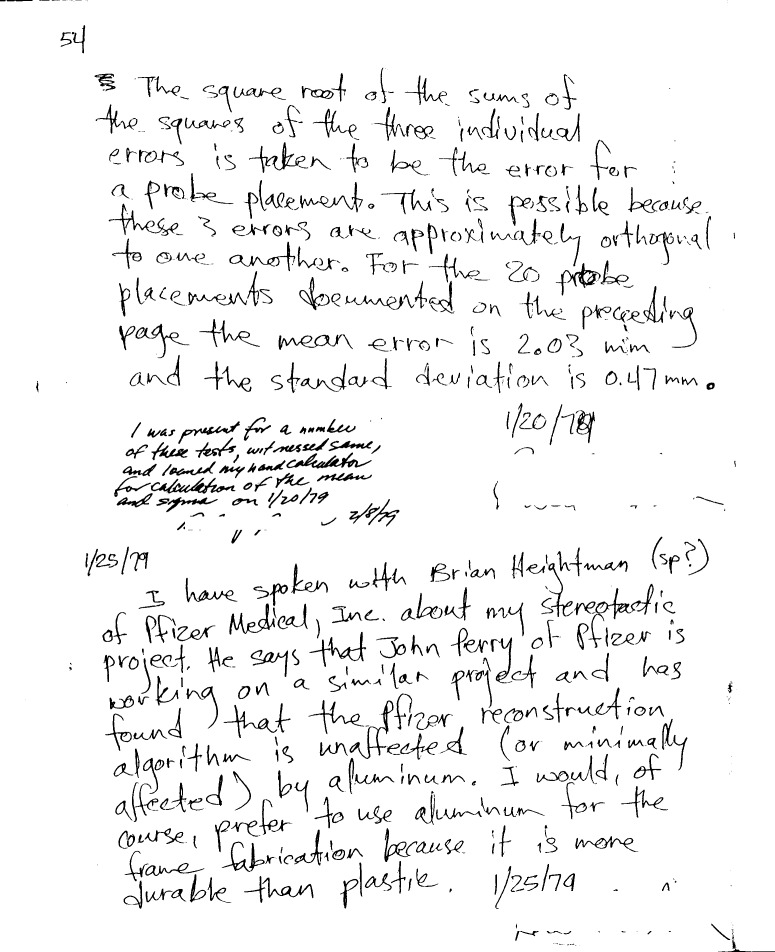 54
The square root of the sums of
the squares of the three individual
errors is taken to be the error for
a probe placement. This is possible because
these 3 errors are approximately orthogonal
to one another. For the 20 probe
placements documented on the preceeding
page the mean error is 2.03 mm
and the standard deviation is 0.47 mm.
1/20/79
I was present for a number
of these tests, witnessed same,
and loaned my hand calculator
for calculation of the mean
and sigma on 1/20/79
2/8/79
1/25/79
I have spoken with Brian Heightman (sp?)
of Pfizer Medical, Inc. about my stereotactic
project. He says that John Perry of Pfizer is
working on a similar project and has
found that the Pfizer reconstruction
algorithm is unaffected (or minimally
affected) by aluminum. I would, of
course, prefer to use aluminum for the
frame fabrication because it is more
durable than plastic. 1/25/79